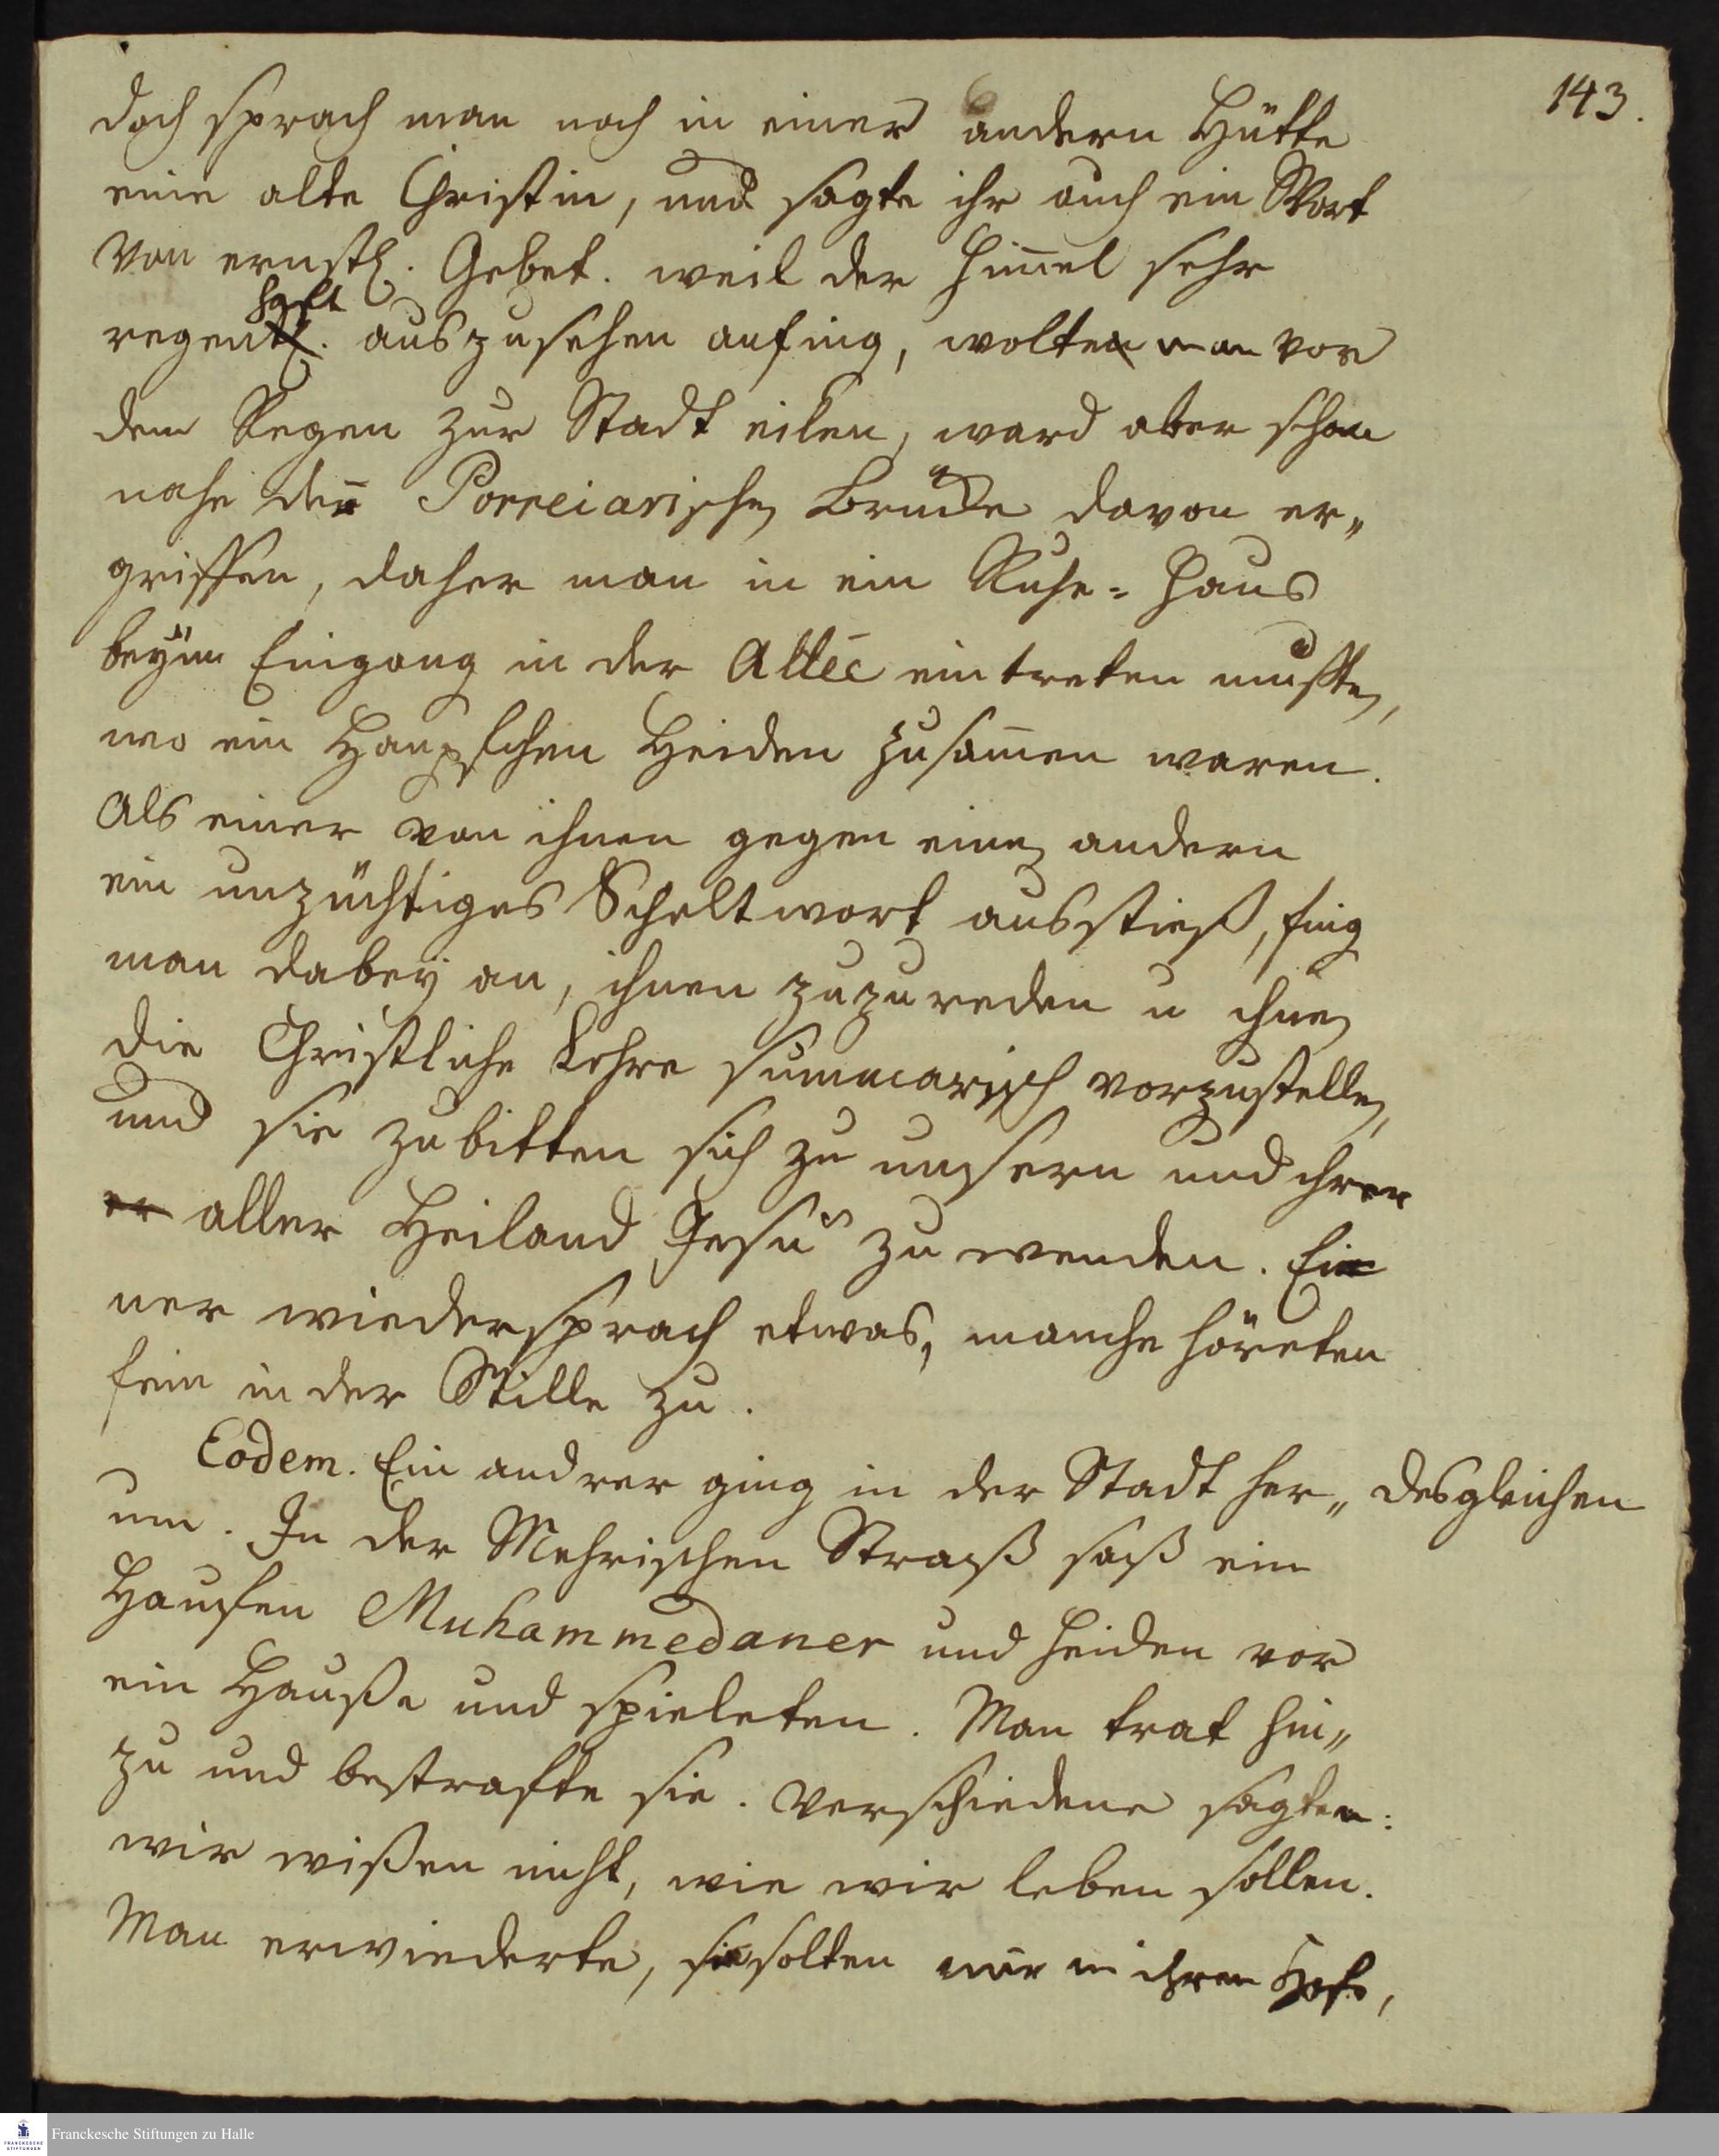 143.
doch sprach man noch in einer andern Hütte
eine alte Christin, und sagte ihr auch ein Wort
von ernstl. Gebet. weil der Him̄el sehr
haft
regen auszusehen anfing, wolte man vor
dem Regen zur Stadt eilen, ward aber schon
nahe der Porreiarischen Brücke davon er„
griffen, daher man in ein Ruhe-Haus
beym Eingang in der Allée eintreten muste,
wo ein Häufchen Heiden zusam̄en waren.
Als einer von ihnen gegen einen andern
ein unzüchtiges Scheltwort ausstieß, fing
man dabey an, ihnen zuzureden u ihnen
die Christliche Lehre summarisch vorzustellen,
und sie zubitten sich zu unsern und ihren
er aller Heiland Jesu zu wenden. Ei
ner wiedersprach etwas, manche höreten
fein in der Stille zu.
Eodem. Ein andrer ging in der Stadt her„ desgleichen
um. In der Mehrischen Straß saß ein
Haufen Muhammedaner und Heiden vor
ein Hauße und spieleten. Man trat hin„
zu und bestrafte sie. Verschiedene sagten:
wir wißen nicht, wie wir leben sollen.
Man erwiederte, sie solten nur in ihren Hofe,
Franckesche Stiftungen zu Halle
FRANCKESCHE
STIFTUNGEN